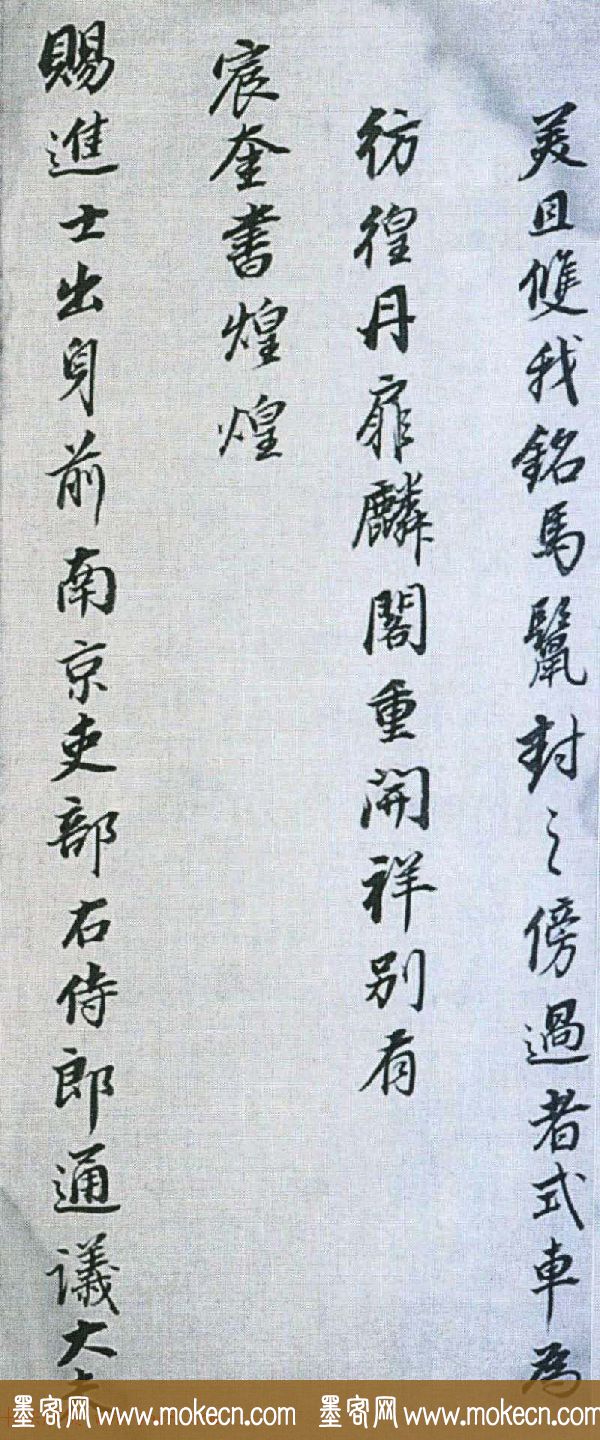 美且雙我銘馬鬣封之傍過者式車為
彷徨丹扉麟閣重開祥別有
宸奎書煌煌
賜進士出身前南京吏部右侍郎通議大夫
墨客网 www.mokecn.com 墨客网 www.mokecn.com